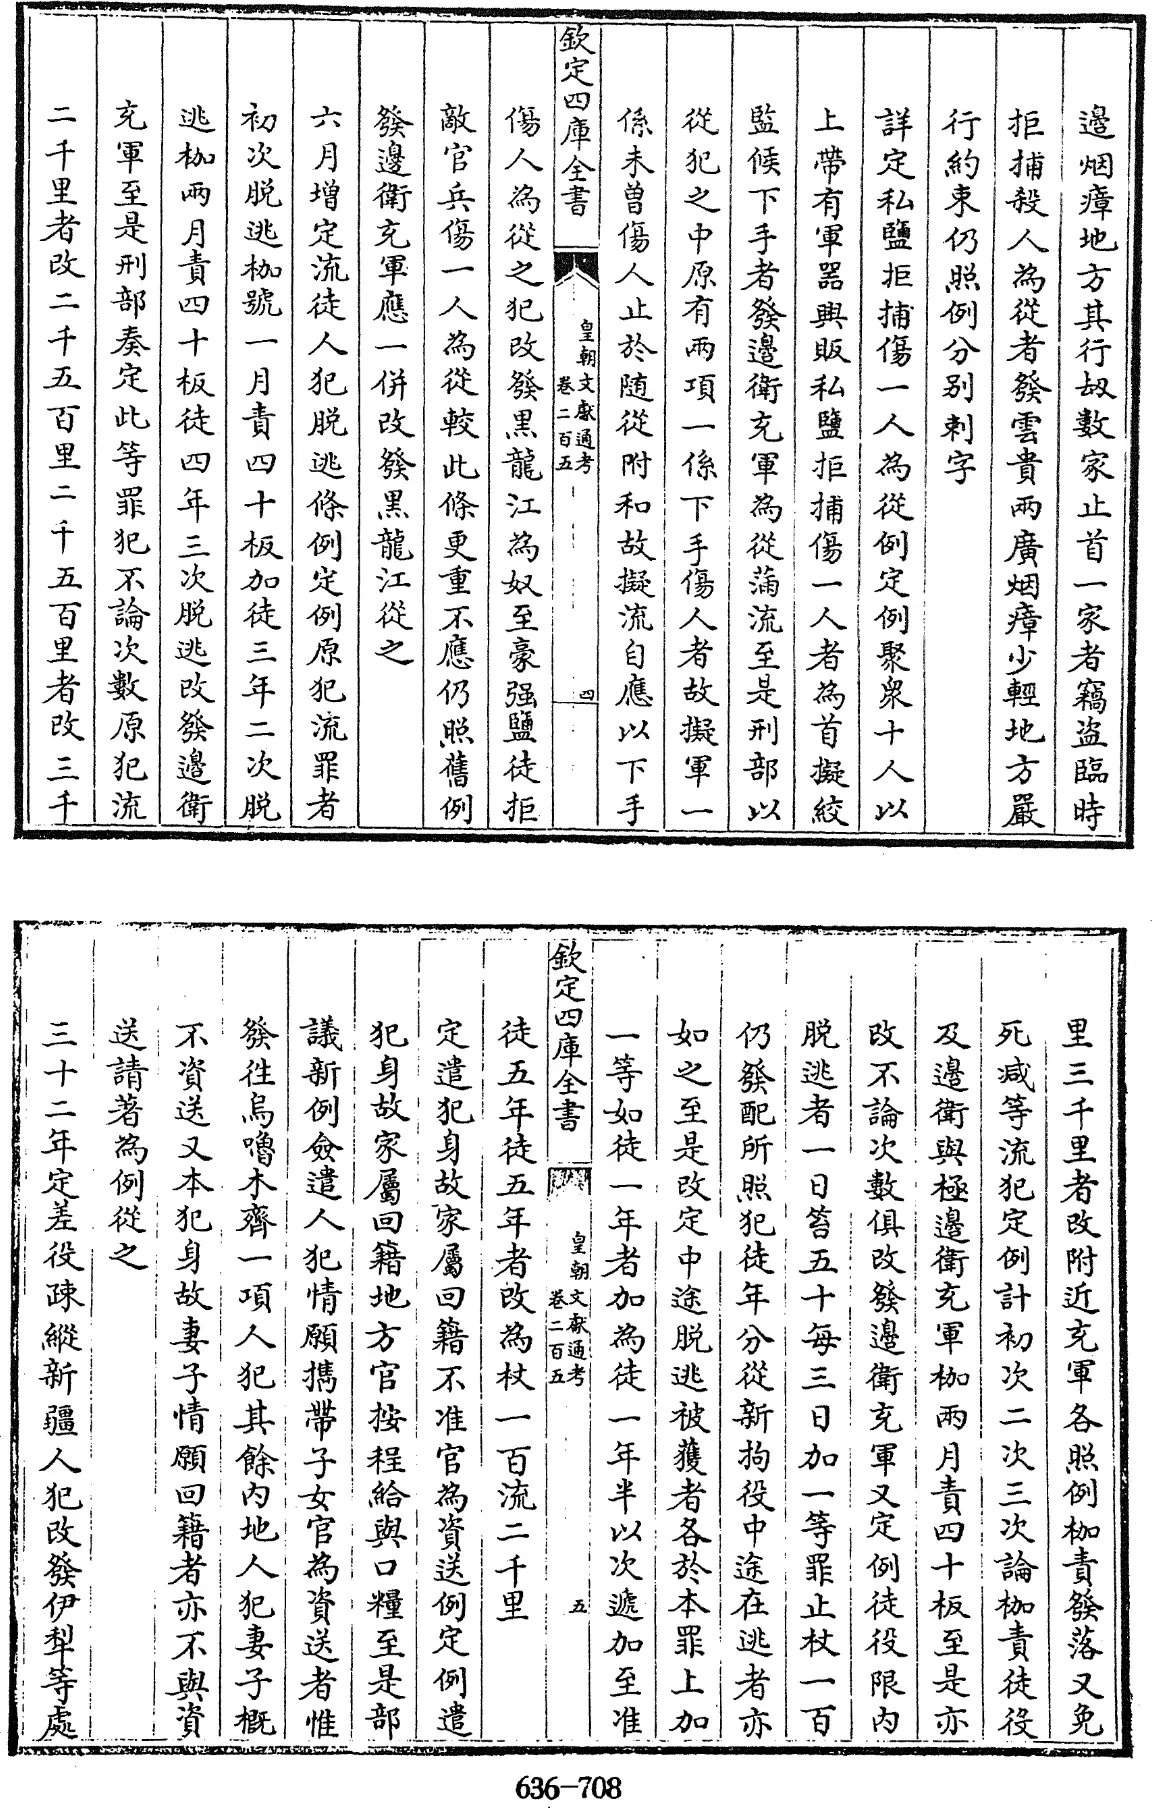 邊烟瘴地方其行刼數家止首一家者竊盜臨時
拒捕殺人為從者發雲貴兩廣烟瘴少輕地方嚴
行約束仍照例分别刺字
詳定私鹽拒捕傷一人為從例定例聚衆十人以
上帶有軍器興販私鹽拒捕傷一人者為首擬絞
監候下手者發邊衛充軍為從滿流至是刑部以
從犯之中原有兩項一係下手傷人者故擬軍一
係未曾傷人止於随從附和故擬流自應以下手
欽定四庫全書
皇朝文獻通考
卷二百五
四
傷人為從之犯改發黑龍江為奴至豪强鹽徒拒
敵官兵傷一人為從較此條更重不應仍照舊例
發邊衛充軍應一併改發黑龍江從之
六月增定流徒人犯脱逃條例定例原犯流罪者
初次脱逃枷號一月責四十板加徒三年二次脱
逃枷兩月責四十板徒四年三次脱逃改發邊衛
充軍至是刑部奏定此等罪犯不論次數原犯流
二千里者改二千五百里二千五百里者改三千
里三千里者改附近充軍各照例枷責發落又免
死減等流犯定例計初次二次三次論枷責徒役
及邊衛與極邊衛充軍枷兩月責四十板至是亦
改不論次數俱改發邊衛充軍又定例徒役限内
脱逃者一日笞五十每三日加一等罪止杖一百
仍發配所照犯徒年分從新拘役中途在逃者亦
如之至是改定中途脱逃被獲者各於本罪上加
一等如徒一年者加為徒一年半以次遞加至准
欽定四庫全書
皇朝文獻通考
卷二百五
五
徒五年徒五年者改為杖一百流二千里
定遣犯身故家屬回籍不准官為資送例定例遣
犯身故家屬回籍地方官按程給與口糧至是部
議新例僉遣人犯情願攜帶子女官為資送者惟
發徃烏嚕木齊一項人犯其餘内地人犯妻子概
不資送又本犯身故妻子情願回籍者亦不與資
送請著為例從之
三十二年定差役疎縱新疆人犯改發伊犁等處
636-708